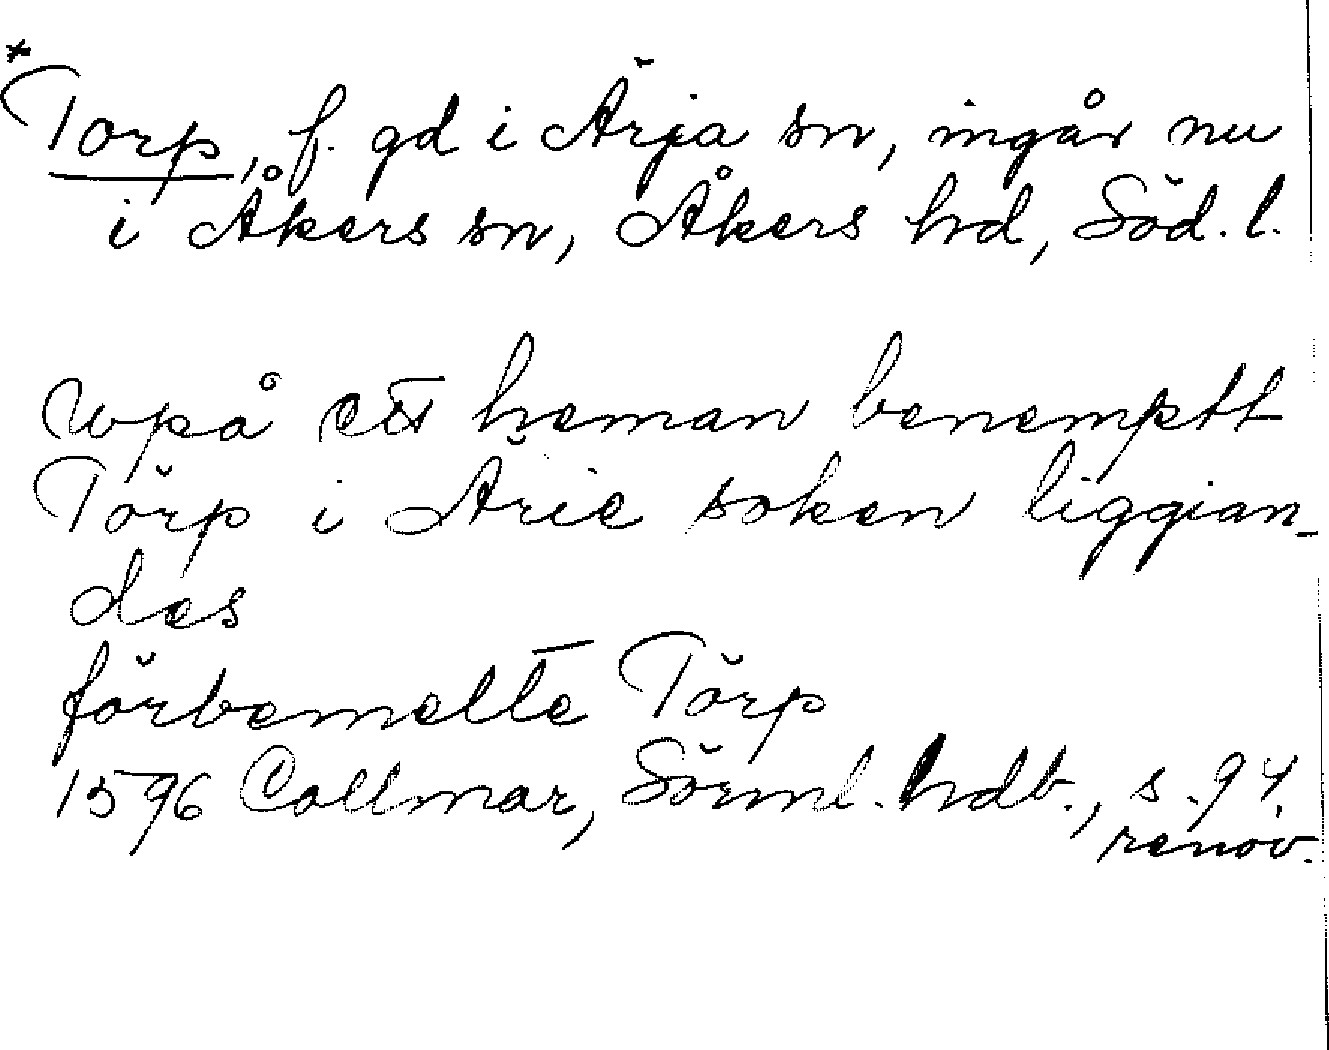 *Torp, f. gd i Ärja sn, ingår nu
i Åkers sn, Åkers hd, Söd. l.
Wpå ett heman benemptt
Törp i Ärie soken liggian-
des
förbemelte Törp
1596 Collmar, Sörml. hdb., s. 94.
renov.